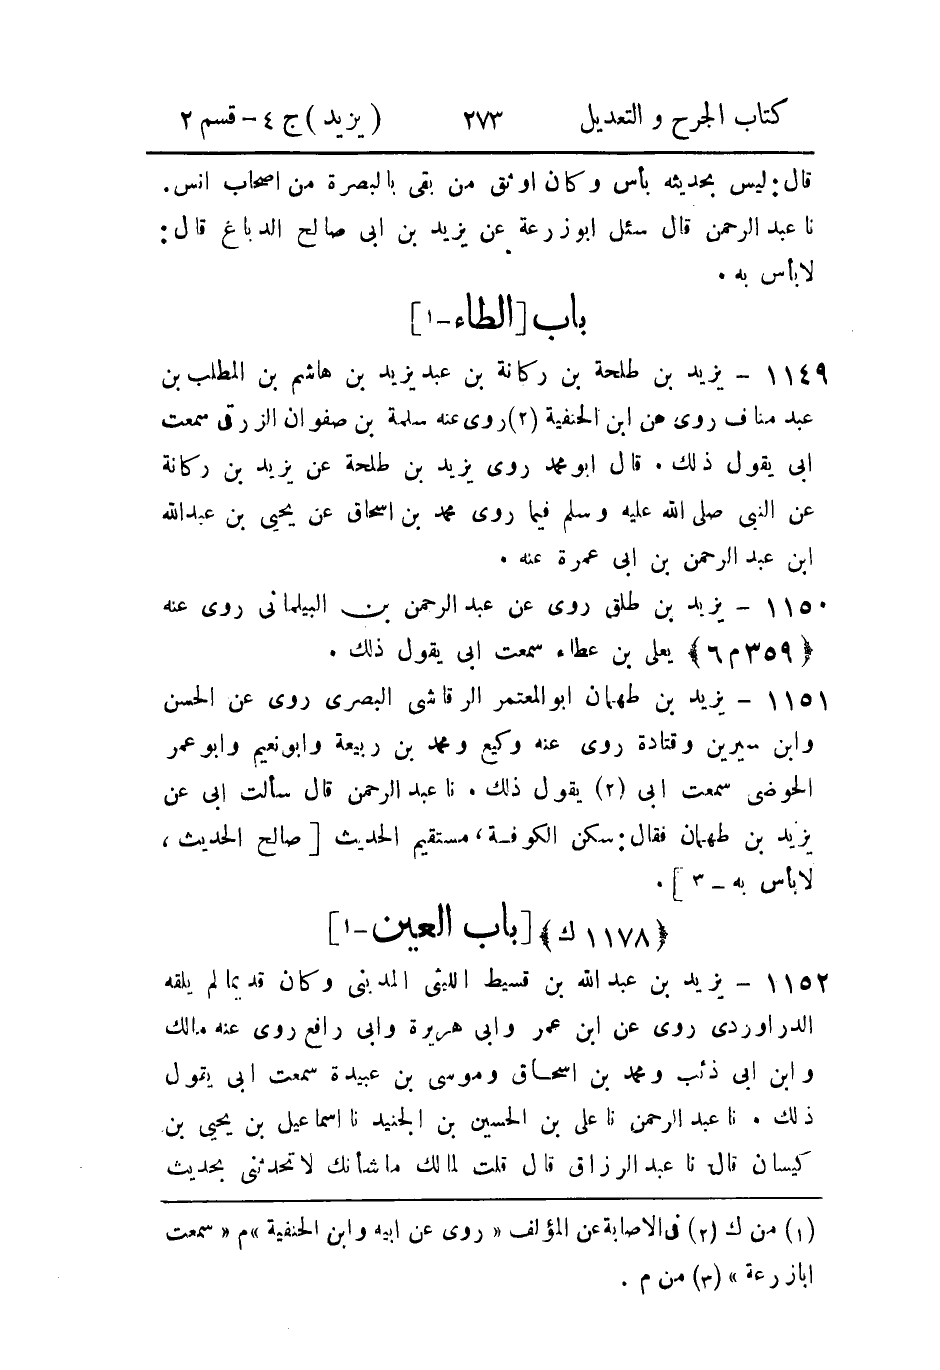 كتاب الجرح و التعديل ٢٧٣ (يزيد) ج ٤ - قسم ٢
قال: ليس بحديثه بأس وكان اوثق من بقى بالبصرة من اصحاب انس.
نا عبد الرحمن قال سئل ابو زرعة عن يزيد بن ابى صالح الدباغ قال:
لا بأس به.
باب [الطاء-١]
١١٤٩ - يزيد بن طلحة بن ركانة بن عبد يزيد بن هاشم بن المطلب بن
عبد مناف روى عن ابن الحنفية (٢) روى عنه سلمة بن صفوان الزرقى سمعت
ابى يقول ذلك. قال ابو محمد روى يزيد بن طلحة عن يزيد بن ركانة
عن النبى صلى الله عليه وسلم فيما روى محمد بن اسحاق عن يحيى بن عبد الله
ابن عبد الرحمن بن ابى عمرة عنه.
١١٥٠ - يزيد بن طلق روى عن عبد الرحمن بن البيلمانى روى عنه
﴿٣٥٩م٦﴾ يعلى بن عطاء سمعت ابى يقول ذلك.
١١٥١ - يزيد بن طهمان ابو المعتمر الرقاشى البصرى روى عن الحسن
وابن سيرين وقتادة روى عنه وكيع ومحمد بن ربيعة وابو نعيم وابو عمر
الحوضى سمعت ابى (٢) يقول ذلك. نا عبد الرحمن قال سألت ابى عن
يزيد بن طهمان فقال: سكن الكوفة، مستقيم الحديث [صالح الحديث،
لا بأس به - ٣].
﴿١١٧٨ ك﴾ [باب العين-١]
١١٥٢ - يزيد بن عبد الله بن قسيط الليثى المدينى وكان قديما لم يلقه
الدراوردى روى عن ابن عمر وابى هريرة وابى رافع روى عنه مالك
وابن ابى ذئب ومحمد بن اسحاق وموسى بن عبيدة سمعت ابى يقول
ذلك. نا عبد الرحمن نا على بن الحسين بن الجنيد نا اسماعيل بن يحيى بن
كيسان قال نا عبد الرزاق قال قلت لمالك ما شأنك لا تحدثنى بحديث
(١) من ك (٢) فى الاصابة عن المؤلف « روى عن ابيه وابن الحنفية » م « سمعت
ابازرعة » (٣) من م.